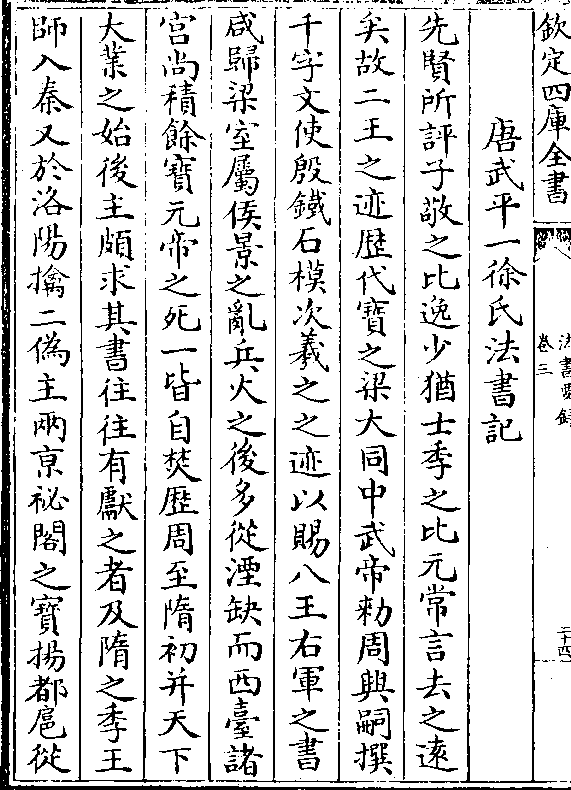 欽定四庫全書
法書要録
卷三
二十四
唐武平一徐氏法書記
先賢所評子敬之比逸少猶士季之比元常言去之逺
矣故二王之迹歴代寳之梁大同中武帝勅周興嗣撰
千字文使殷鐵石模次羲之之迹以賜八王右軍之書
咸歸梁室屬侯景之亂兵火之後多從湮缺而西臺諸
宫尚積餘寳元帝之死一皆自焚歴周至隋初并天下
大業之始後主頗求其書往往有獻之者及隋之季王
師入秦又於洛陽擒二偽主兩京祕閣之寳揚都扈從